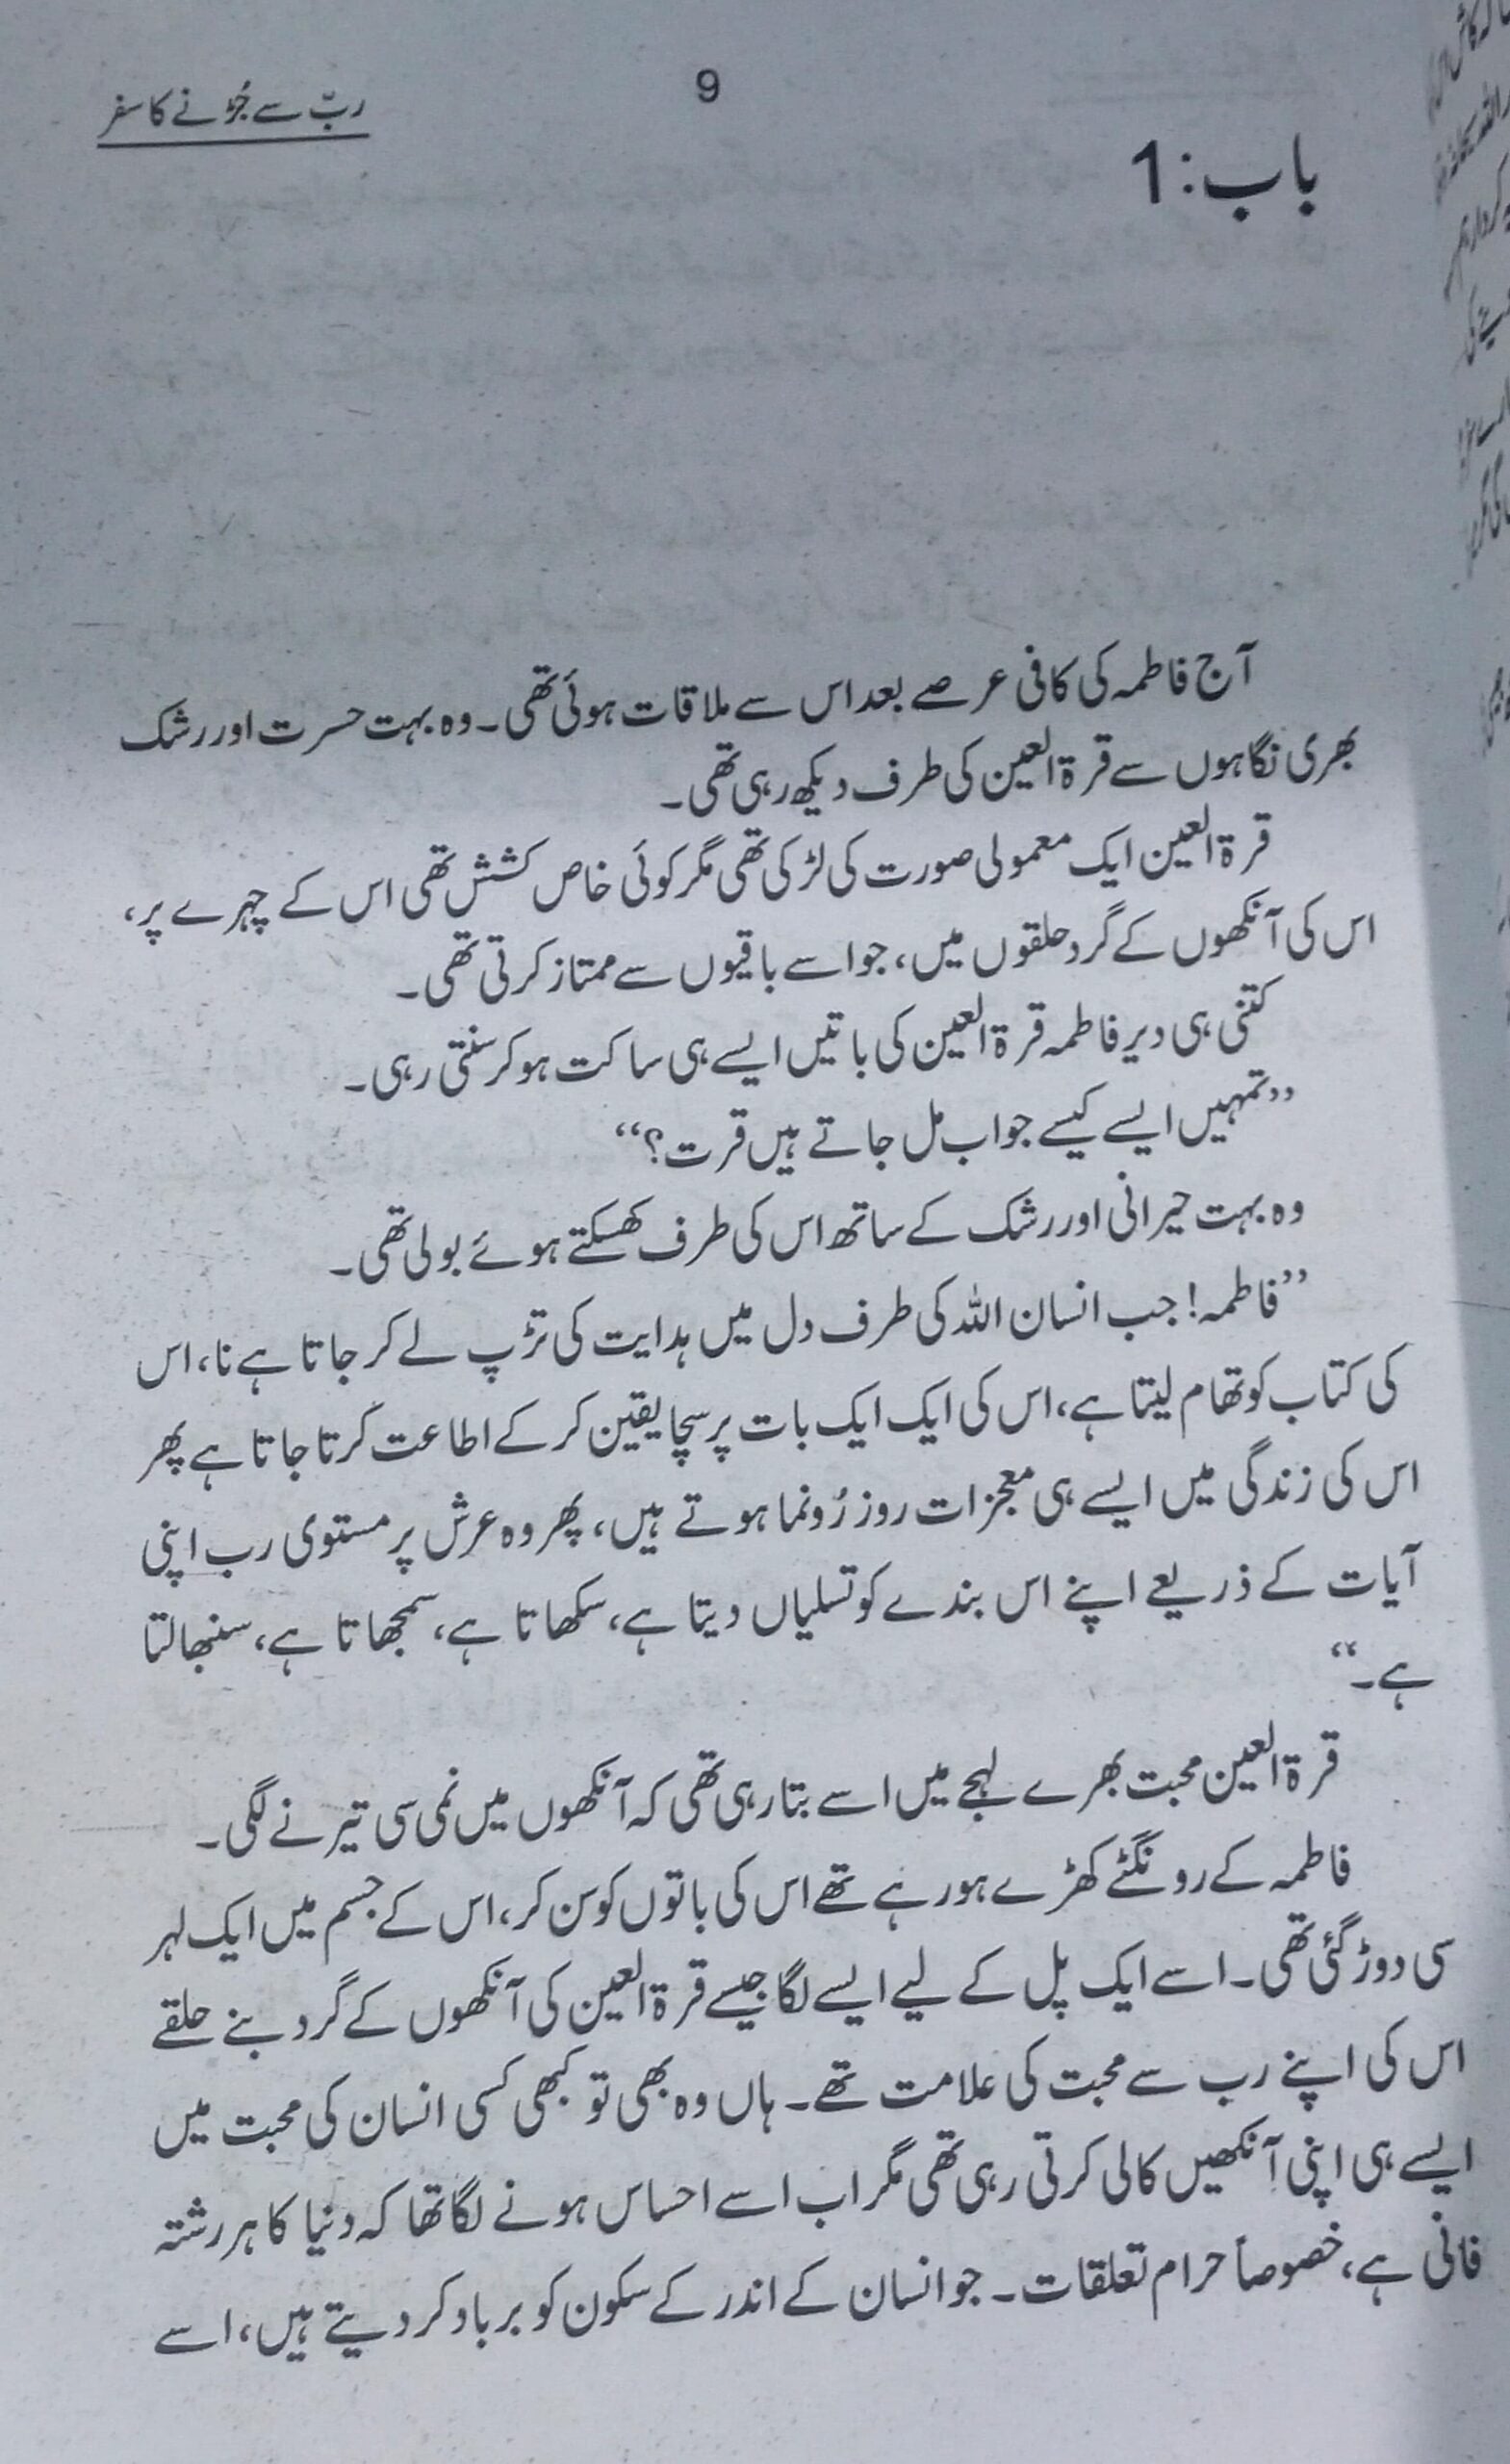 ربّ سے جُڑنے کا سفر
9
باب:1
آج فاطمہ کی کافی عرصے بعد اس سے ملاقات ہوئی تھی۔ وہ بہت حسرت اور رشک
بھری نگاہوں سے قرۃ العین کی طرف دیکھ رہی تھی۔
قرۃ العین ایک معمولی صورت کی لڑکی تھی مگر کوئی خاص کشش تھی اس کے چہرے پر،
اس کی آنکھوں کے گرد حلقوں میں، جو اسے باقیوں سے ممتاز کرتی تھی۔
کتنی ہی دیر فاطمہ قرۃ العین کی باتیں ایسے ہی ساکت ہو کر سنتی رہی۔
”تمہیں ایسے کیسے جواب مل جاتے ہیں قرت؟“
وہ بہت حیرانی اور رشک کے ساتھ اس کی طرف کھسکتے ہوئے بولی تھی۔
”فاطمہ! جب انسان اللہ کی طرف دل میں ہدایت کی تڑپ لے کر جاتا ہے نا، اس
کی کتاب کو تھام لیتا ہے، اس کی ایک ایک بات پر سچا یقین کر کے اطاعت کرتا جاتا ہے پھر
اس کی زندگی میں ایسے ہی معجزات روز رُونما ہوتے ہیں، پھر وہ عرش پر مستوی رب اپنی
آیات کے ذریعے اپنے اس بندے کو تسلیاں دیتا ہے، سکھاتا ہے، سمجھاتا ہے، سنبھالتا
ہے۔“
قرۃ العین محبت بھرے لہجے میں اسے بتا رہی تھی کہ آنکھوں میں نمی سی تیرنے لگی۔
فاطمہ کے رونگٹے کھڑے ہو رہے تھے اس کی باتوں کو سن کر، اس کے جسم میں ایک لہر
سی دوڑ گئی تھی۔ اسے ایک پل کے لیے ایسے لگا جیسے قرۃ العین کی آنکھوں کے گرد بنے حلقے
اس کی اپنے رب سے محبت کی علامت تھے۔ ہاں وہ بھی تو کبھی کسی انسان کی محبت میں
ایسے ہی اپنی آنکھیں کالی کرتی رہی تھی مگر اب اسے احساس ہونے لگا تھا کہ دنیا کا ہر رشتہ
فانی ہے، خصوصاً حرام تعلقات۔ جو انسان کے اندر کے سکون کو برباد کر دیتے ہیں، اسے